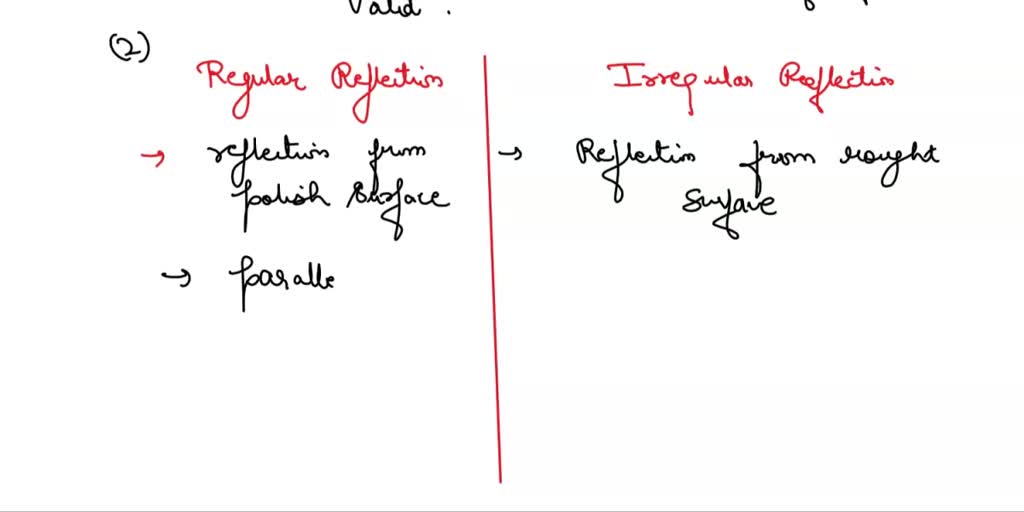 Valid.
(2)
Regular Reflection
Irregular Reflection
→ reflection from
polish surface
→ Reflection from rought
surface
→ paralle